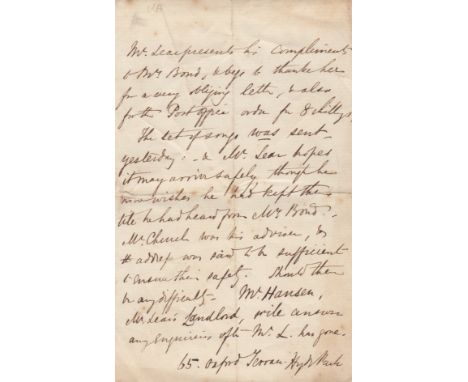 Mr. Lear presents his compliments
to Mrs Bond, & begs to thank her
for a very obliging letter, & also
for the Post office order for 8 shillgs.
The set of songs was sent
yesterday: - & Mr. Lear hopes
it may arrive safely though he
now wishes he had kept the
till he had heard from Mrs. Bond.
Mr. Church was his adviser, &
address was said to be sufficient
to ensure their safety. Should there
be any difficulty - Mr Hansen,
Mr. Lear's Landlord, will answer
any enquiries after Mr. L. has gone.
65. Oxford Terrace Hyde Park